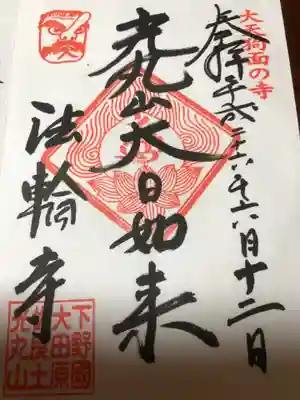 大天狗面の寺
奉拝 平成二十六年六月十二日
光丸山大日如来
法輪寺
下野國
大田原
佐良土
光丸山